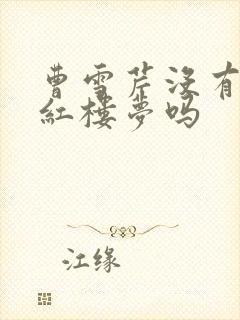 曹雪芹没有
红楼梦吗
江缘